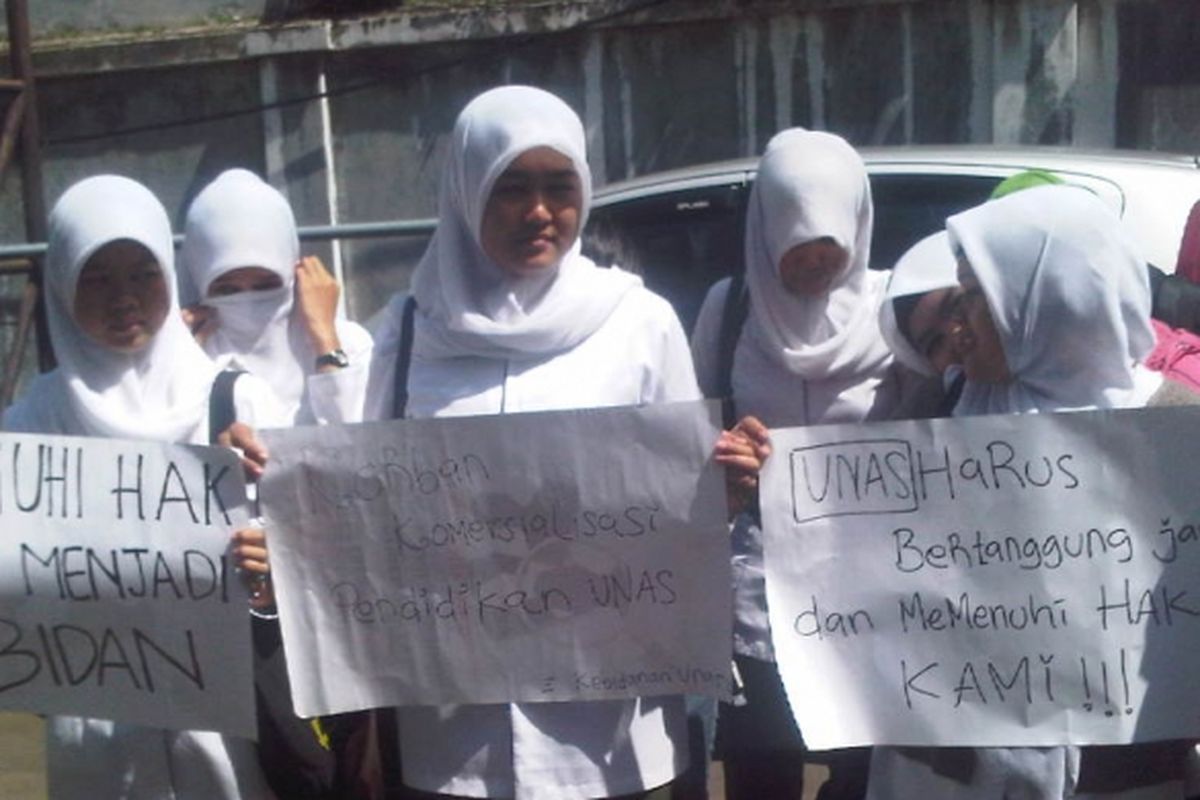 UHI HAK
MENJADI
BIDAN
Korban
Komersialisasi
Pendidikan UNAS
Kebidanan Unas
UNAS HaRus
Bertanggung ja
dan MeMenuhi HAK
KAMi!!!